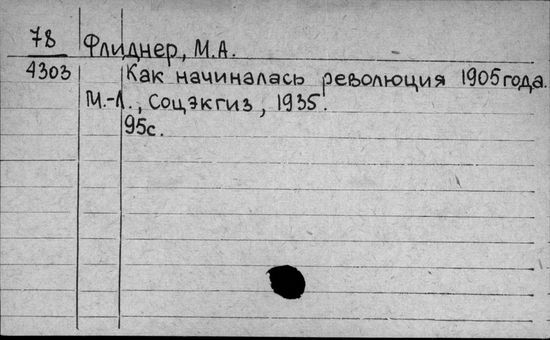 78 Флиднер, М.А.
4303 Как начиналась революция 1905 года.
М.-Л., Соцэкгиз, 1935.
95с.